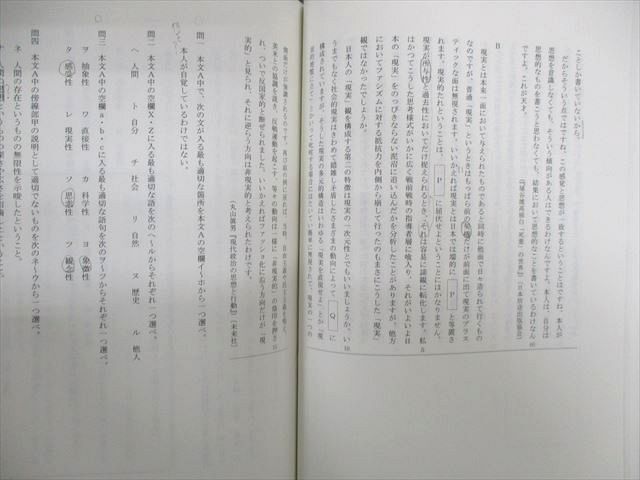 ことしか書いていないから。
だからそういう点ではですね。この感覚と思想が一致するということはですね、本人が
思想を意識しなくても、そういう傾向がある人はできるわけなんですよ。本人は、自分は
思想的なものを書こうと思わなくても、結果において思想的なことを書いているわけなん
ですよ。これが天才。
B
現実とは本来一面において与えられたものであると同時に他面で日々造られて行くもの
なのですが、普通「現実」というときはもっぱら前の契機だけが前面に出て現実のプラス
ティックな面は無視されます。いいかえれば現実とは日本では端的に
P
と等置さ
れます。現実的たれということは、
P
に屈伏せよということにほかなりません。
現実が所与性と過去性においてだけ捉えられるとき、それは容易に諦観に転化します。私
はかつてこうした思考様式がいかに広く戦前戦時の指導者層に喰入り、それがいよいよ日
本の「現実」をのっぴきならない泥沼に追い込んだかを分析したことがありますが、他方
においてファシズムに対する抵抗力を内側から崩して行ったのもまさにこうした「現実」
観ではなかったでしょうか。
日本人の「現実」観を構成する第二の特徴は現実の一次元性とでもいいましょうか。い
うまでもなく社会的現実はきわめて錯雑し矛盾したさまざまの動向によって
Q
に
構成されていますが、そうした現実の多元的構造はいわゆる「現実を直視せよ」とか「現
側面だけが強調されるのです。再び前の例に戻れば、当時、自由主義や民主主義を唱え、
英米との協調を説き、反動運動を起こす、等々の動向は一様に「非現実的」の烙印を押さ
れ、ついで反国家的と断ぜられました。いいかえればファッショ化に沿う方向だけが「現
実的」と見られ、それに逆らう方向は非現実的と考えられたわけです。
(丸山眞男『現代政治の思想と行動』〔未来社〕)
問一 本文Aの中で、次の文が入る最も適切な箇所を本文Aの空欄イ〜ホから一つ選べ。
本人が自覚しているわけではない。
問二 本文A中の空欄X・Zに入る最も適切な語を次のヘ〜ルからそれぞれ一つ選べ。
ヘ 人間 ト 自分 チ 社会 リ 自然 ヌ 歴史 ル 他人
問三 本文A中の空欄a・b・cに入る最も適切な語句を次のヲ〜ツからそれぞれ一つ選べ。
ヲ 抽象性 ワ 直接性 カ 科学性 ヨ 象徴性
タ 感受性 レ 現実性 ソ 思想性 ツ 観念性
問四 本文A中の傍線部甲の説明として適切でないものを次のネ〜ムから一つ選べ。
ネ 人間の存在というものの無限性を示唆したということ。